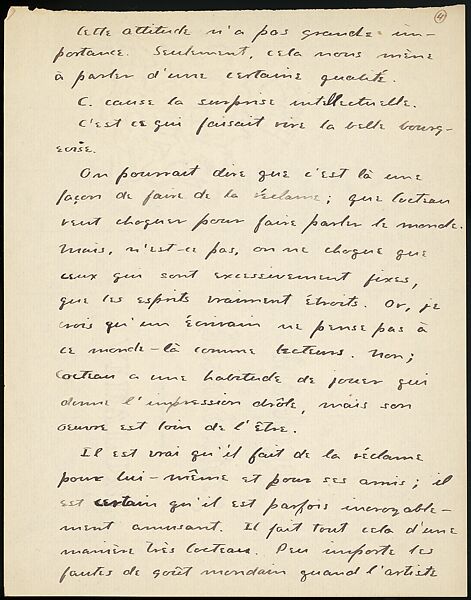 4
Cette attitude n'a pas grande im-
portance. Seulement, cela nous mène
à parler d'une certaine qualité.
C. cause la surprise intellectuelle.
C'est ce qui faisait vivre la belle bourg-
eoise.
On pourrait dire que c'est là une
façon de faire de la réclame; que Cocteau
veut choquer pour faire parler le monde.
Mais, n'est-ce pas, on ne choque que
ceux qui sont excessivement fixes,
que les esprits vraiment étroits. Or, je
crois qu'un écrivain ne pense pas à
ce monde-là comme lecteurs. Non;
Cocteau a une habitude de jouer qui
donne l'impression drôle, mais son
œuvre est loin de l'être.
Il est vrai qu'il fait de la réclame
pour lui-même et pour ses amis; il
est certain qu'il est parfois incroyable-
ment amusant. Il fait tout cela d'une
manière très Cocteau. Peu importe les
fautes de goût mondain quand l'artiste